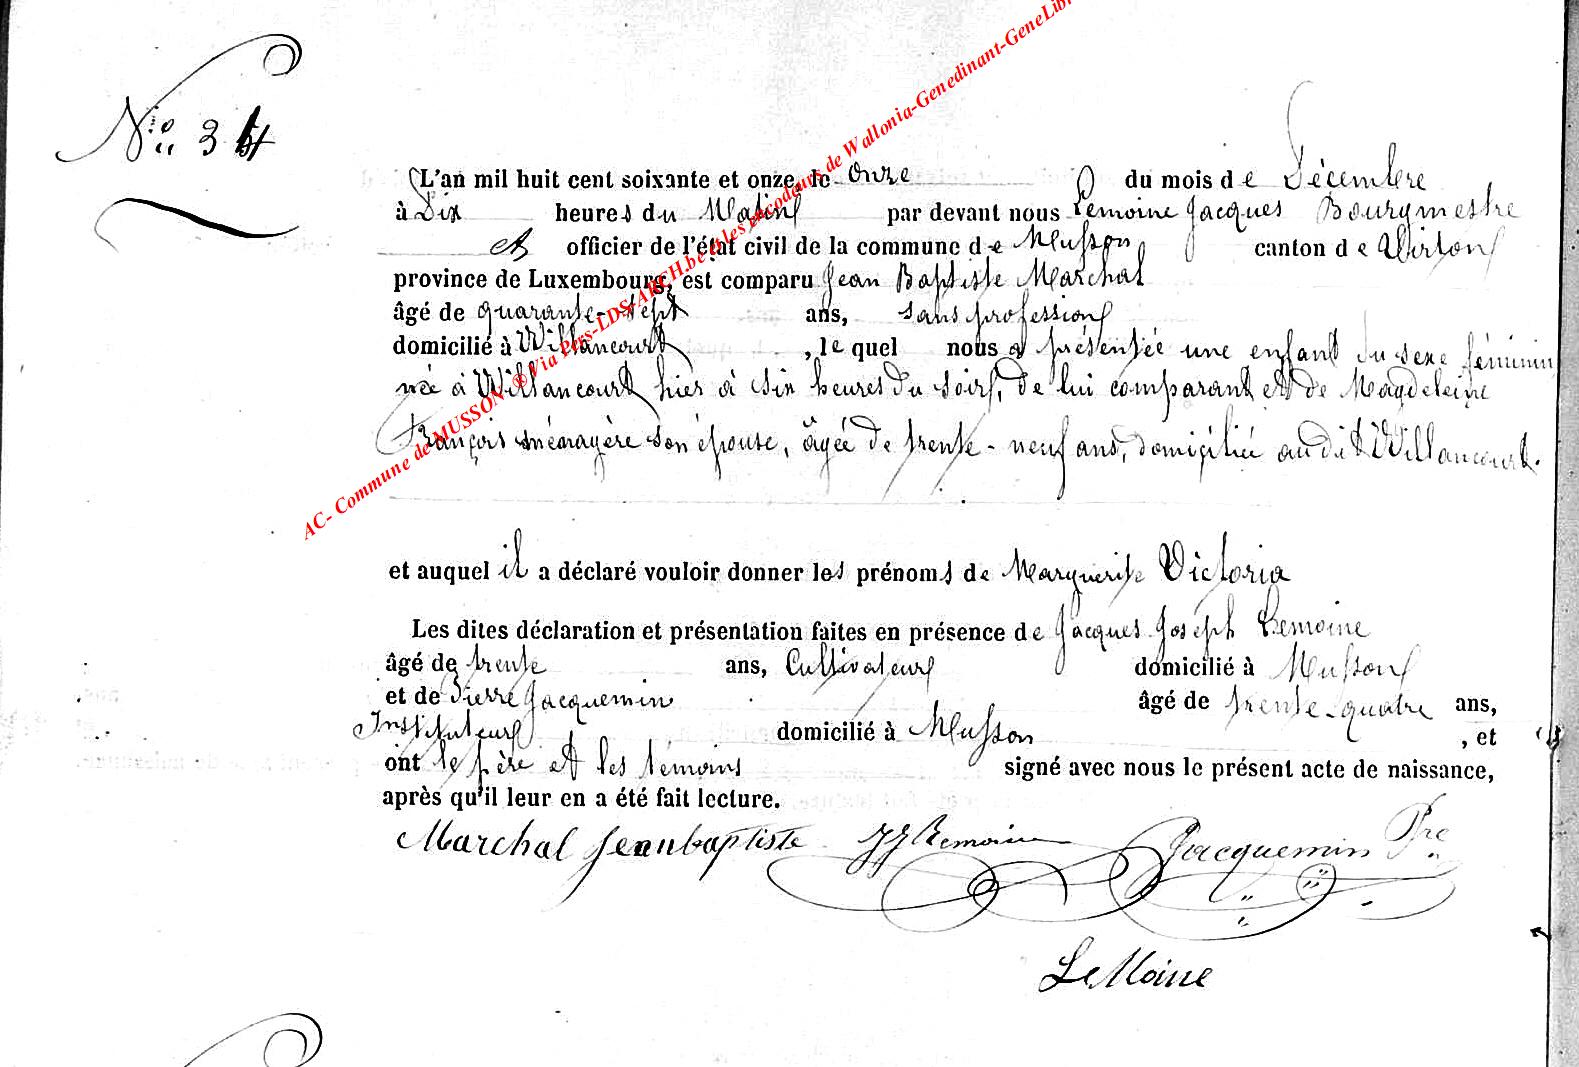 N° 34
L'an mil huit cent soixante et onze, le onze du mois de Décembre
à Dix heures du Matin par devant nous Lemoine Jacques Bourgmestre
et officier de l'état civil de la commune de Musson canton de Virton
province de Luxembourg, est comparu Jean Baptiste Marchal
âgé de quarante-sept ans, sans profession
domicilié à Willancourt, le quel nous a présentée une enfant du sexe féminin
née à Willancourt hier à six heures du soir, de lui comparant et de Magdeleine
François ménagère son épouse, âgée de trente-neuf ans, domiciliée au dit Willancourt.
et auquel il a déclaré vouloir donner les prénoms de Marguerite Victoria
Les dites déclaration et présentation faites en présence de Jacques Joseph Lemoine
âgé de trente ans, Cultivateur domicilié à Musson
et de Pierre Jacquemin âgé de trente-quatre ans,
Instituteur domicilié à Musson, et
ont le père et les témoins signé avec nous le présent acte de naissance,
après qu'il leur en a été fait lecture.
Marchal Jeanbaptiste JJ Lemoine Jacquemin Pre
LeMoine
AC- Commune de MUSSON ® Via Pers-LDS-ARCH.be et les encodeurs de Wallonia-Genedinant-GeneLib